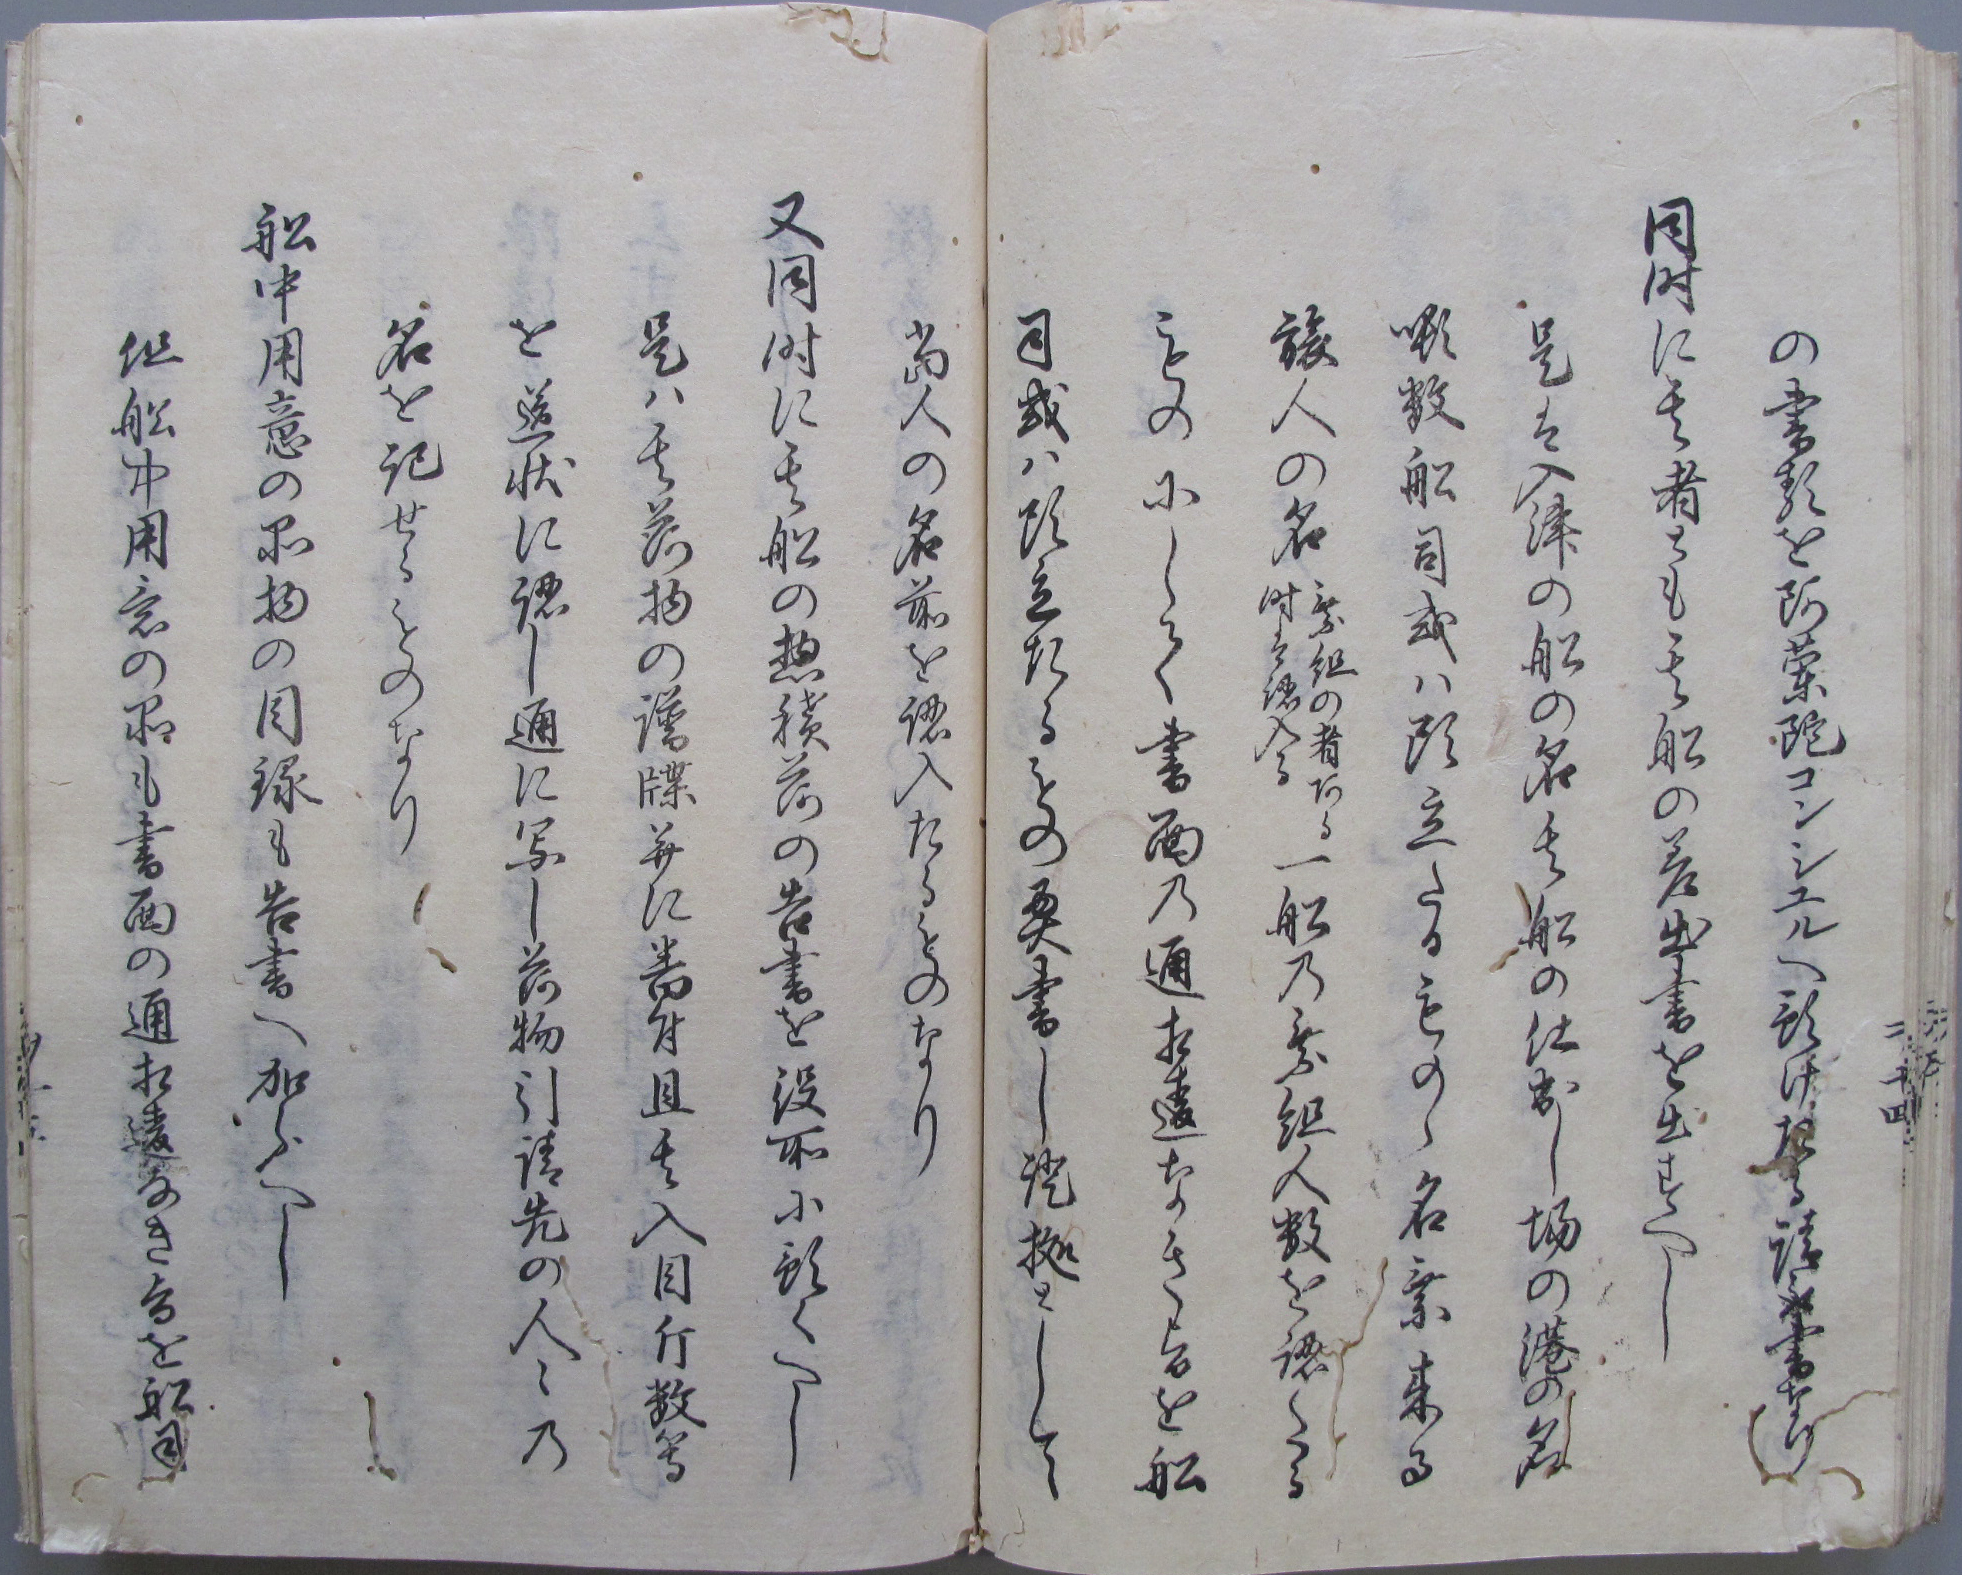 の書類を阿蘭陀コンシユルへ預けたる請書なり
同時に其者とも其船の差出書を出すへし
是は入津の船の名其船の仕出し場の港の名
噸数船司或ハ頭立たるものゝ名乗来る
旅人の名
乗組の者ある
時は認入る
一船乃乗組人数を認たる
ものにして書面乃通相違なき旨を船
司或ハ頭立たるものゝ奥書し証拠として
当人の名前を認入たるものなり
又同時に其船の惣積荷の告書を役所に預くへし
是ハ其荷物の譜牒并に番付且其入目斤数等
を送状に認し通に写し荷物引請先の人々乃
名を記せるものなり
船中用意の品物の目録も告書へ加ふへし
但船中用意の品も書面の通相違なき旨を船司